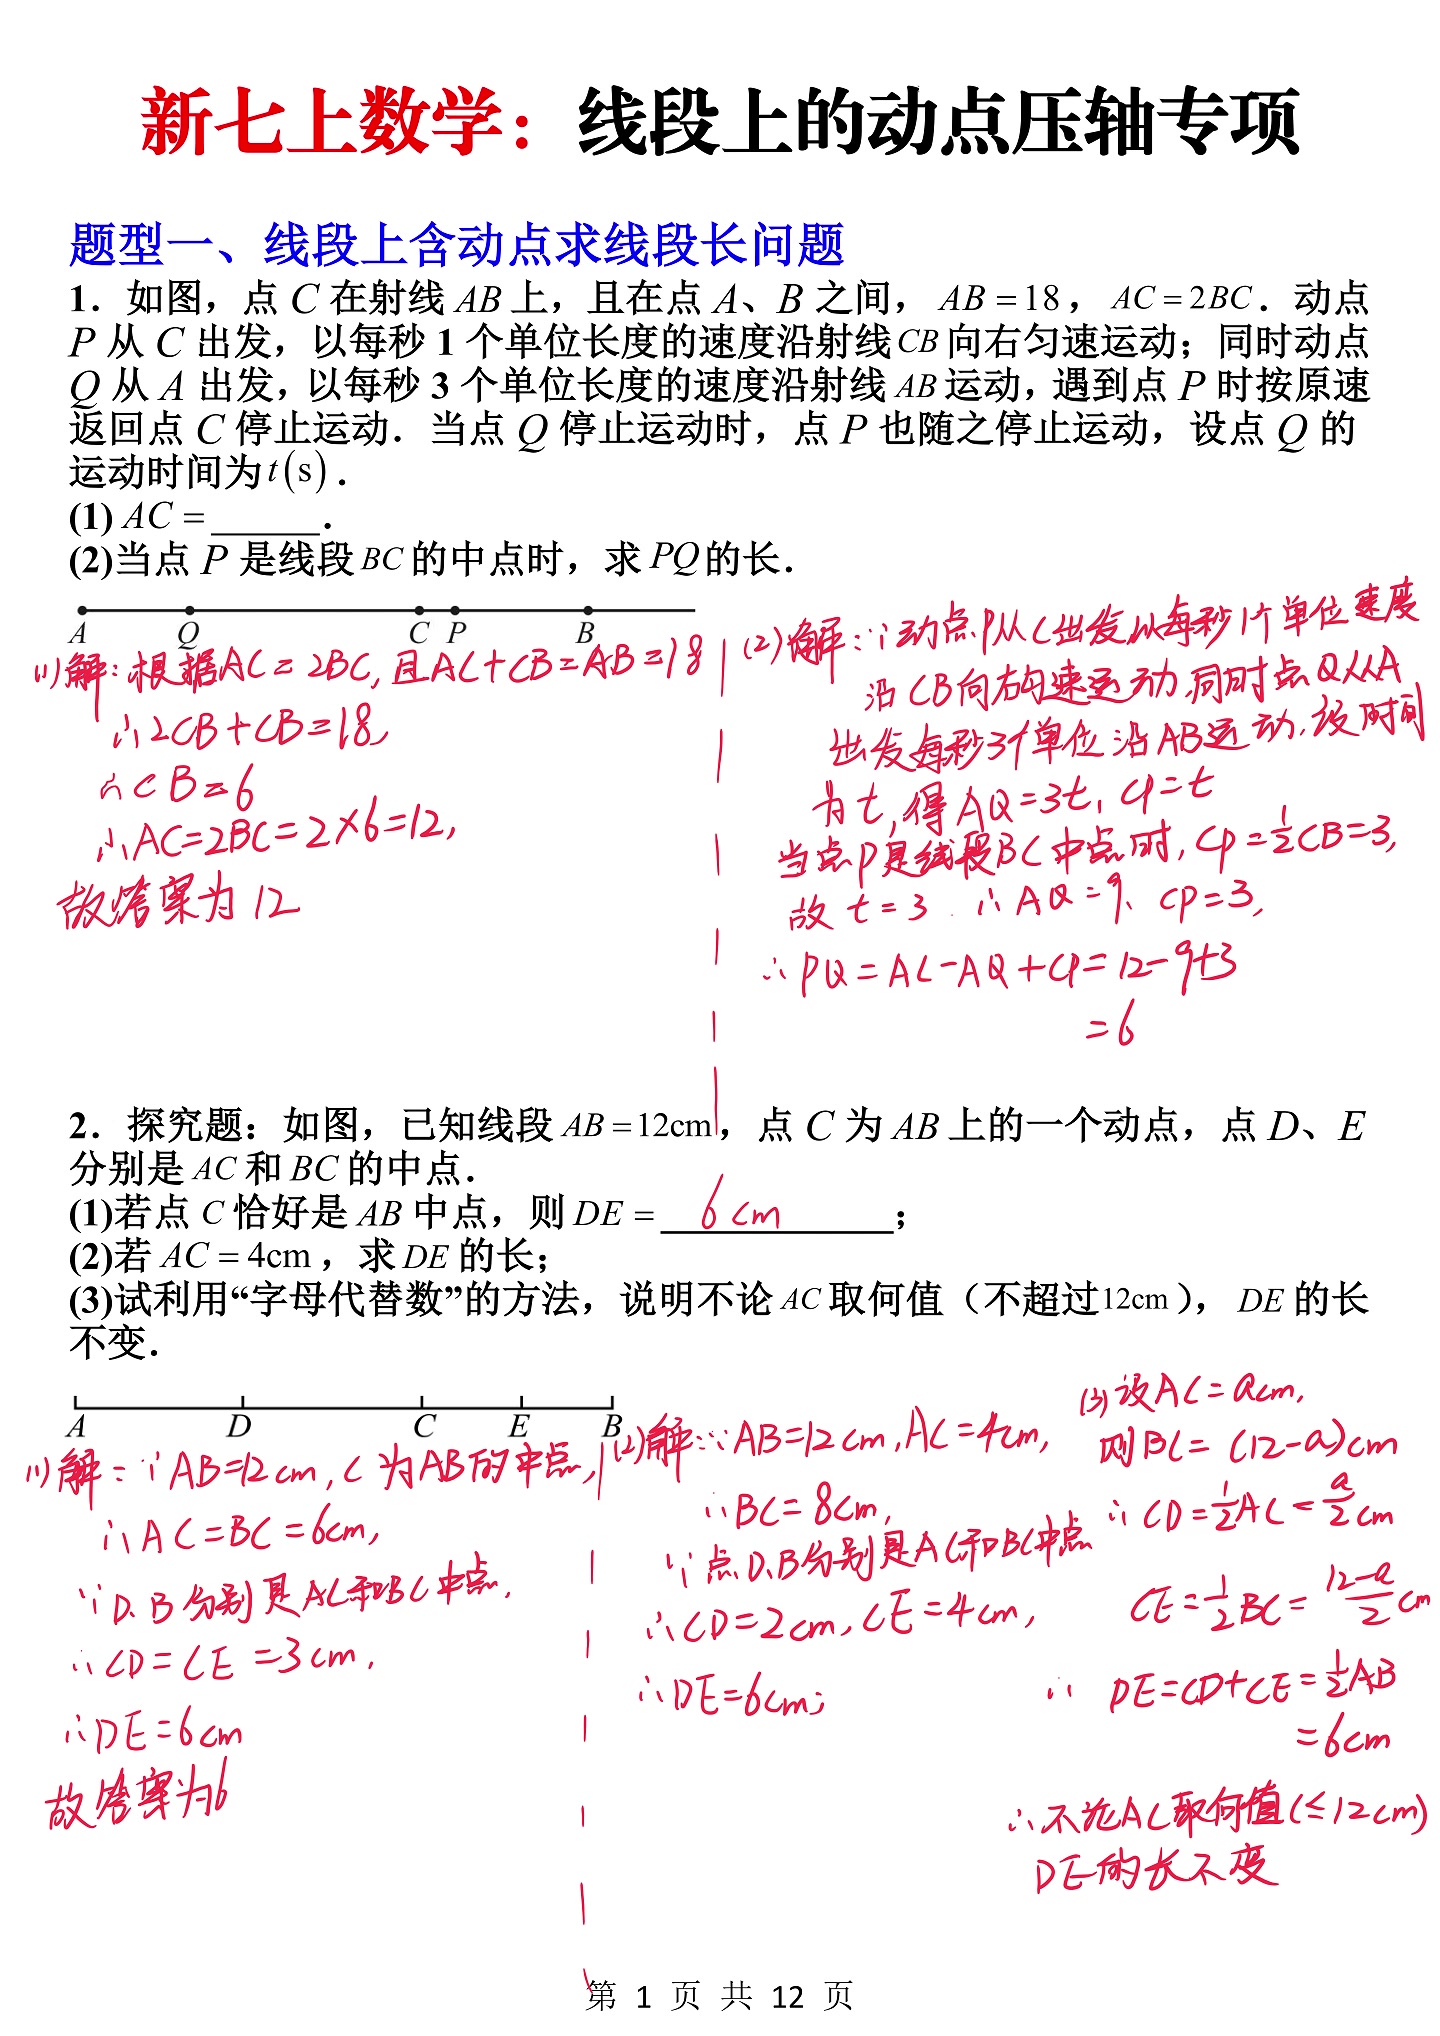 新七上数学：线段上的动点压轴专项
题型一、线段上含动点求线段长问题
1．如图，点 C 在射线 AB 上，且在点 A、B 之间， AB = 18， AC = 2BC．动点
P 从 C 出发，以每秒 1 个单位长度的速度沿射线 CB 向右匀速运动；同时动点
Q 从 A 出发，以每秒 3 个单位长度的速度沿射线 AB 运动，遇到点 P 时按原速
返回点 C 停止运动．当点 Q 停止运动时，点 P 也随之停止运动，设点 Q 的
运动时间为 t(s)．
(1) AC = ______．
(2)当点 P 是线段 BC 的中点时，求 PQ 的长．
A Q C P B
(1)解：根据AC=2BC,且AC+CB=AB=18
∴2CB+CB=18,
∴CB=6
∴AC=2BC=2×6=12,
故答案为12
(2)解：∵动点P从C出发以每秒1个单位速度
沿CB向右匀速运动,同时点Q从A
出发每秒3个单位沿AB运动.设时间
为t,得AQ=3t, CP=t
当点P是线段BC中点时, CP=½CB=3,
故 t=3 ∴AQ=9、CP=3,
∴PQ=AC-AQ+CP=12-9+3
=6
2．探究题：如图，已知线段 AB = 12cm，点 C 为 AB 上的一个动点，点 D、E
分别是 AC 和 BC 的中点．
(1)若点 C 恰好是 AB 中点，则 DE = 6cm；
(2)若 AC = 4cm，求 DE 的长；
(3)试利用“字母代替数”的方法，说明不论 AC 取何值（不超过12cm）， DE 的长
不变．
A D C E B
(1)解：∵AB=12cm, C为AB的中点,
∴AC=BC=6cm,
∵D、B分别是AC和BC中点.
∴CD=CE=3cm.
∴DE=6cm
故答案为6
(2)解：∵AB=12cm, AC=4cm,
∴BC=8cm,
∵点D、B分别是AC和BC中点
∴CD=2cm, CE=4cm,
∴DE=6cm;
(3)设AC=acm,
则BC=(12-a)cm
∴CD=½AC=a/2cm
CE=½BC=12-a/2cm
∴ DE=CD+CE=½AB
=6cm
∴不论AC取何值(≤12cm)
DE的长不变
第 1 页 共 12 页